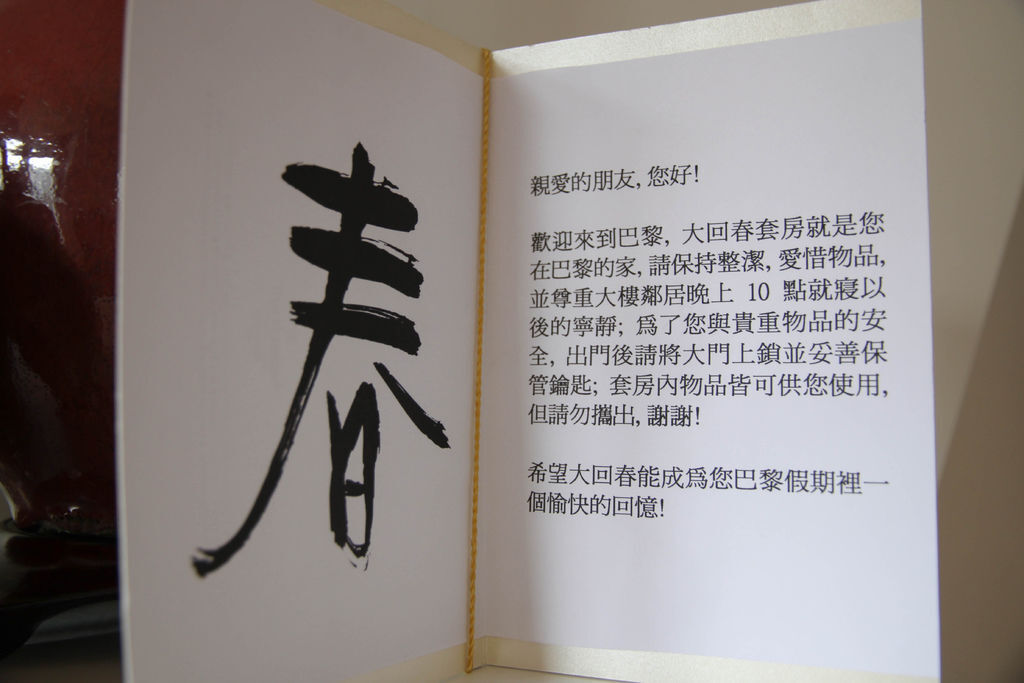 春
親愛的朋友, 您好!
歡迎來到巴黎, 大回春套房就是您
在巴黎的家, 請保持整潔, 愛惜物品,
並尊重大樓鄰居晚上 10 點就寢以
後的寧靜; 爲了您與貴重物品的安
全, 出門後請將大門上鎖並妥善保
管鑰匙; 套房內物品皆可供您使用,
但請勿攜出, 謝謝!
希望大回春能成爲您巴黎假期裡一
個愉快的回憶!